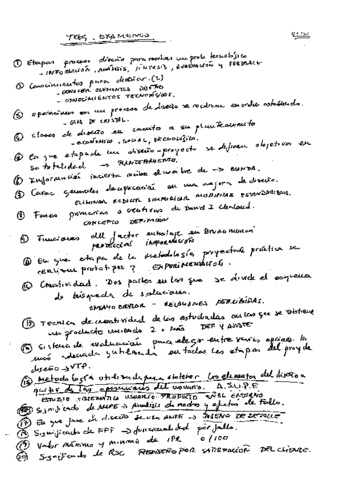 TEEG. EXAMENES
① Etapas proceso diseño para resolver un prob tecnológico
- INFORMACIÓN, ANÁLISIS, SÍNTESIS, EVALUACIÓN y FEEDBACK
② Conocimientos para diseñar. (2)
- CONOCER ELEMENTOS DISEÑO
- CONOCIMIENTOS TECNOLÓGICOS.
③ operaciones en un proceso de diseño se realizan en orden establecido.
- CAJA DE CRISTAL.
④ clases de diseño en cuanto a su planteamiento
- ECONÓMICO, SOCIAL, TECNOLÓGICO.
⑤ En que etapa de un diseño-proyecto se definen objetivos en
su totalidad → PLANTEAMIENTO.
⑥ Información incierta recibe el nombre de →
⑦ Carac generales en una mejora de diseño.
ELIMINAR REDUCIR SIMPLIFICAR MODIFICAR ESTANDARIZAR.
⑧ Fases primarias o creativas de David
CONCEPTO DEFINICION
⑨ Funciones del factor embalaje en Bruno Munari
PROTECCION INFORMACIÓN
⑩ En que etapa de la metodología proyectual práctica se
realizan prototipos? EXPERIMENTACIÓN.
⑪ Creatividad. Dos partes en las que se divide el esquema
de búsqueda de soluciones.
ENSAYO ERROR - RELACIONES PERCIBIDAS.
⑫ Tecnica de creatividad de las estudiadas en las que se obtiene
un producto uniendo 2 o más DEF y AJUSTE
Sistema de evaluación para elegir entre varias opciones. la
más adecuada y utilizada en todas las etapas del proy de
diseño → VTP.
Metodología utilizada para obtener los elementos del diseño a
partir de las operaciones del usuario. A.S.U.P.E
ESTUDIO SISTEMÁTICO USUARIO PRODUCTO EN EL ENTORNO
Significado de AMFE → Análisis de modos y efectos de fallo.
En que fase de diseño se usa AMFE → DISEÑO DE DETALLE
Significado de FPF → funcionalidad por fallo.
⑲ Valor máximo y mínimo de IPR 0/100
⑳ Significado de RSC REDISEÑO POR SATISFACCIÓN DEL CLIENTE.